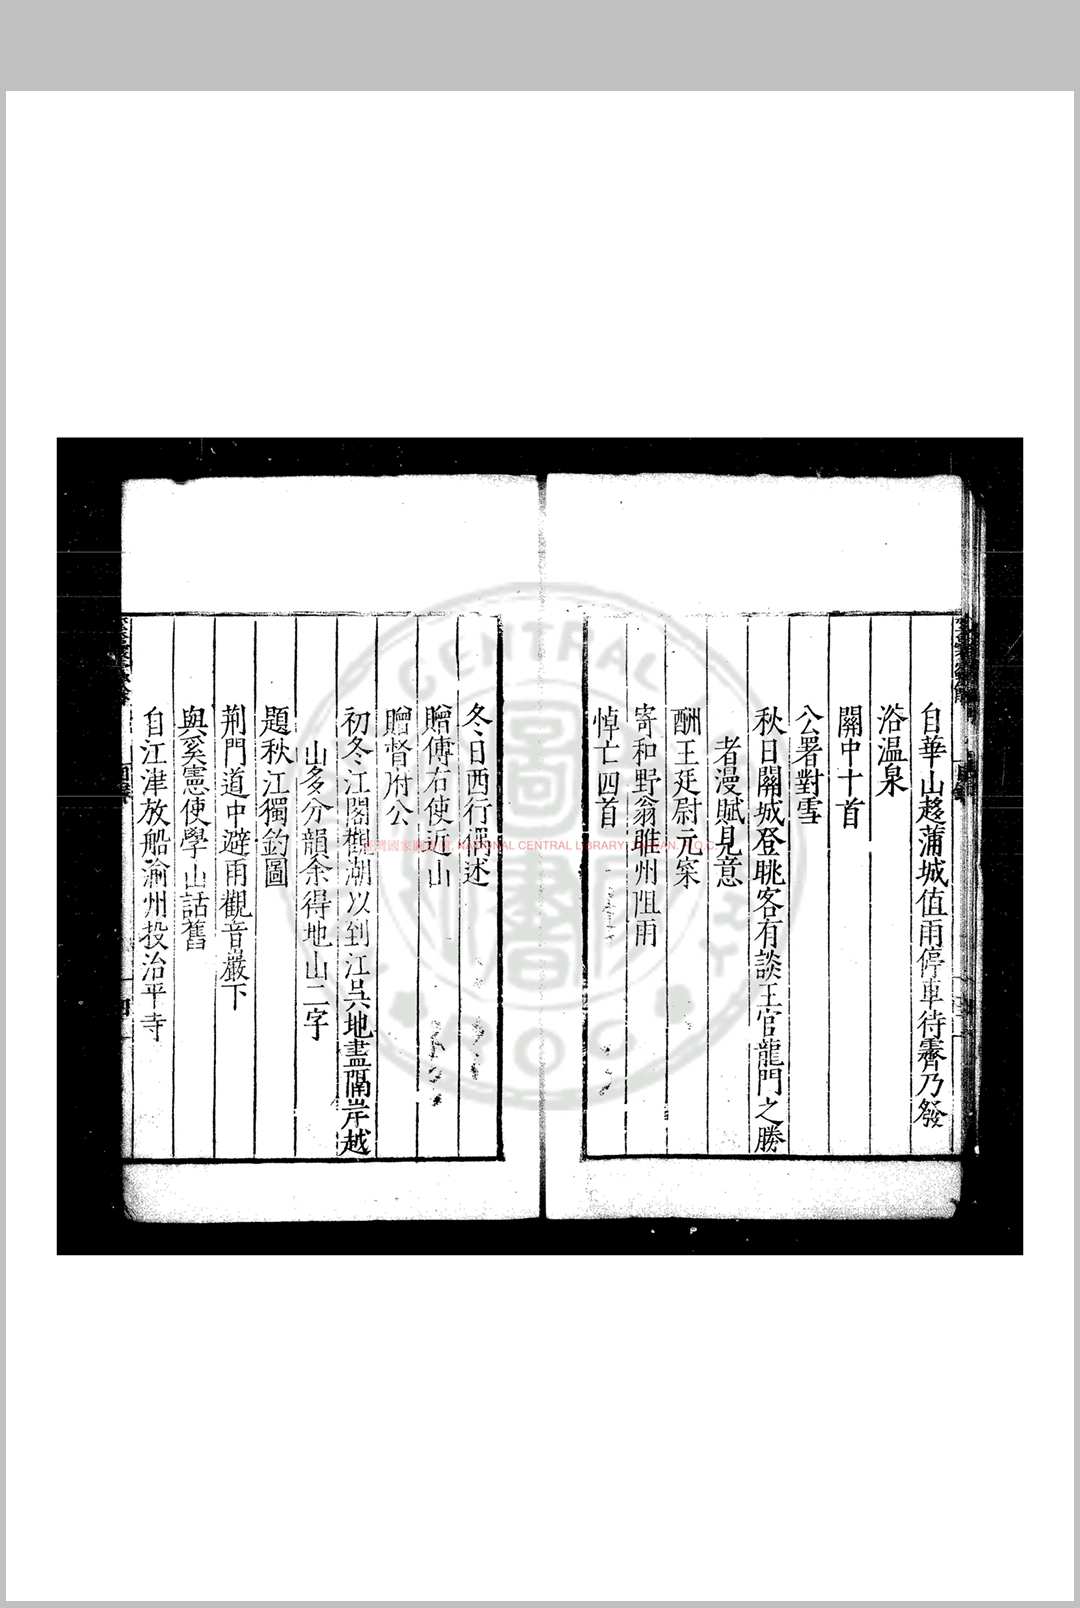 自華山趍蒲城值雨停車待霽乃發
浴温泉
關中十首
公署對雪
秋日關城登眺客有談王官龍門之勝
者漫賦見意
酬王廷尉元寀
寄和野翁睢州阻雨
悼亡四首
冬日西行偶述
贈傅右使近山
贈督府公
初冬江閣觀潮以到江吳地盡隔岸越
山多分韻余得地山二字
題秋江獨釣圖
荆門道中避雨觀音巖下
與奚憲使學山話舊
自江津放船渝州投治平寺
NATIONAL CENTRAL LIBRARY